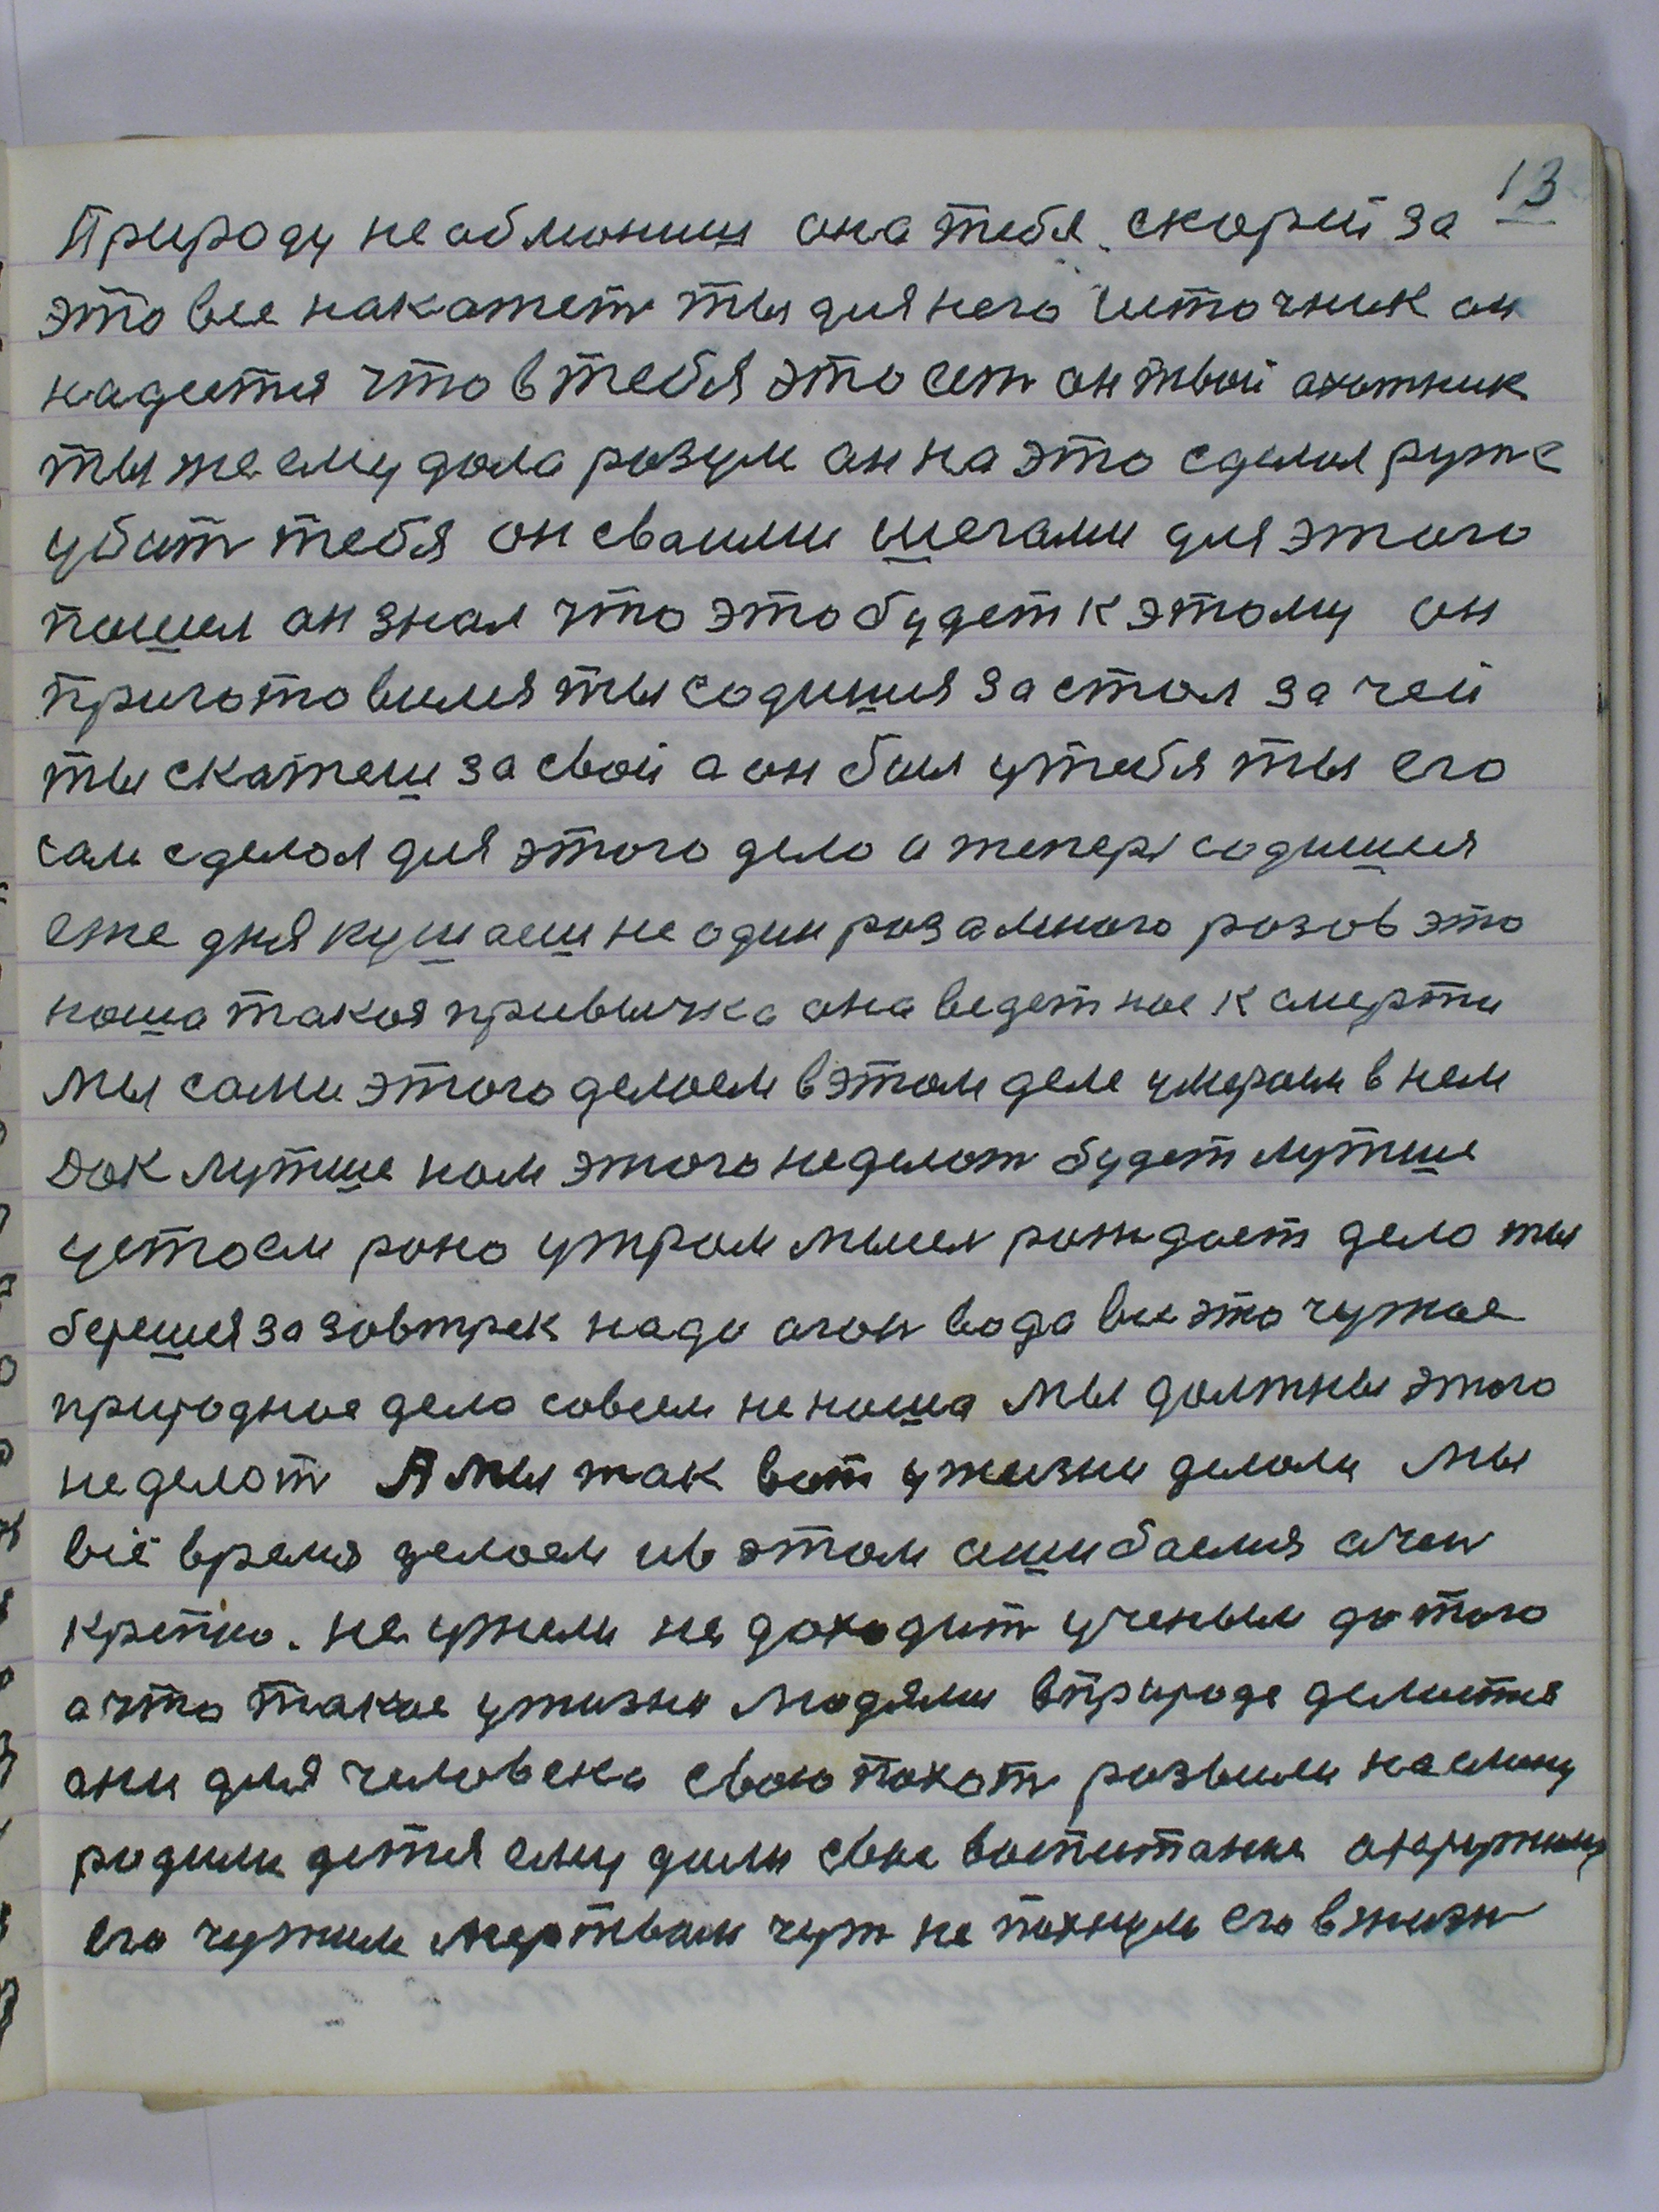 13
Природу не обманиш она тебя скорей за
это все накажет ты для него источник он
надиется что в тебя это ест он твой охотник
ты же ему дала розум он на это сделал руже
убит тебя он своими шегами для этого
пошел он знал что это будет к этому он
приготовился ты содишся за стол за чей
ты скажеш за свой а он был у тебя ты его
сам сделал для этого дело а тепер содишся
еже дня кушаеш не один роз а много розов это
ноша такоя привычка она ведет нос к смерти
Мы соми этого делоем в этом деле умероем в нем
Док лутше ном этого не делот будет лутше
устоем роно утром мысл рождает дело ты
берешся за зовтрек надо огон вода все это чужое
природное дело совсем не ноша Мы должны этого
не делот А мы так вот у жизни делоли Мы
всё время делоем и в этом ошибаемся очен
крепко. не ужели не доходит ученым до того
а что такое у жизни людями в природе делается
они для человека свою похот розвили на смену
родили детя ему дали свое воспитание окружили
его чужим мертвым чут не пехнули его в жизн